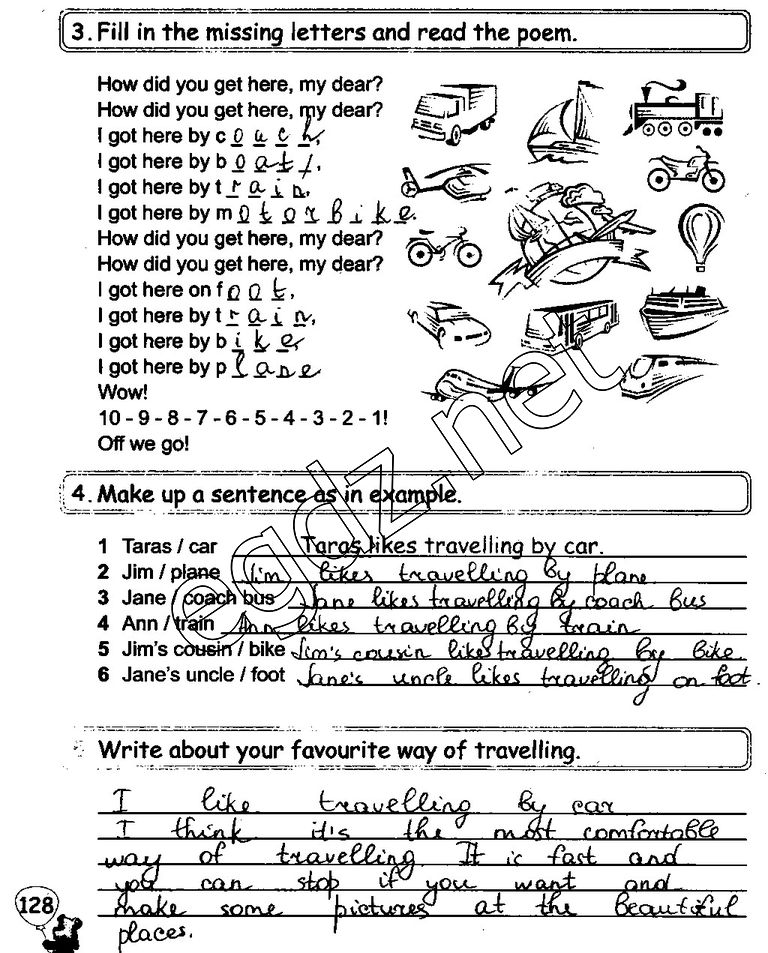 3. Fill in the missing letters and read the poem.
How did you get here, my dear?
How did you get here, my dear?
I got here by couch,
I got here by boat,
I got here by train,
I got here by motorbike.
How did you get here, my dear?
How did you get here, my dear?
I got here on foot,
I got here by train,
I got here by bike,
I got here by plane
Wow!
10 - 9 - 8 - 7 - 6 - 5 - 4 - 3 - 2 - 1!
Off we go!
4. Make up a sentence as in example.
1 Taras / car Taras likes travelling by car.
2 Jim / plane Jim likes travelling by plane
3 Jane / coach bus Jane likes travelling by coach bus
4 Ann / train Ann likes travelling by train
5 Jim's cousin / bike Jim's cousin likes travelling by bike
6 Jane's uncle / foot Jane's uncle likes travelling on foot.
Write about your favourite way of travelling.
I like travelling by car
I think it's the most comfortable
way of travelling. It is fast and
you can stop if you want and
make some pictures at the beautiful
places.
128
egdz.net